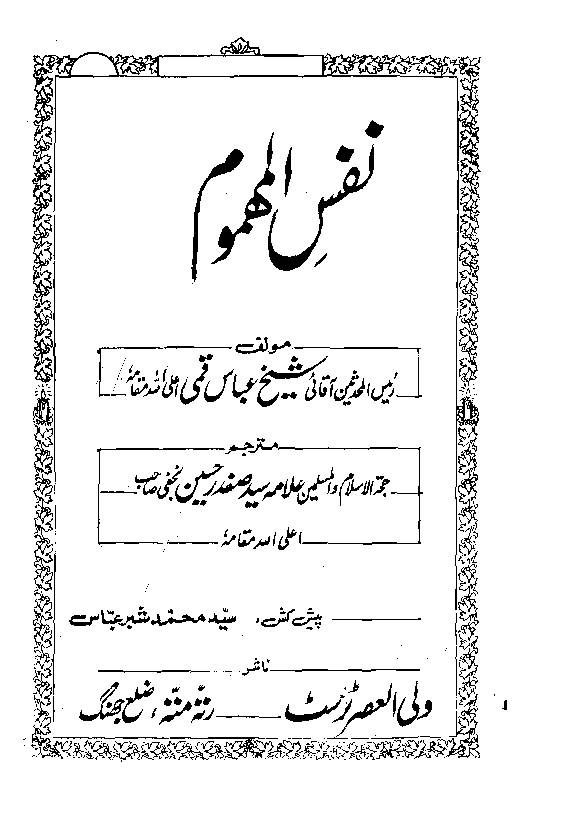 نفس المہموم
مولف
رئیس المحدثین آقائی شیخ عباس قمی اعلی اللہ مقامہٗ
مترجم
حجۃ الاسلام والمسلمین علامہ سید صفدر حسین نجفی صاحب
اعلی اللہ مقامہٗ
پیش کش: سیّد محمّد شبر عبّاس
ناشر
ولی العصر ٹرسٹ رتہ متہ، ضلع جھنگ
1